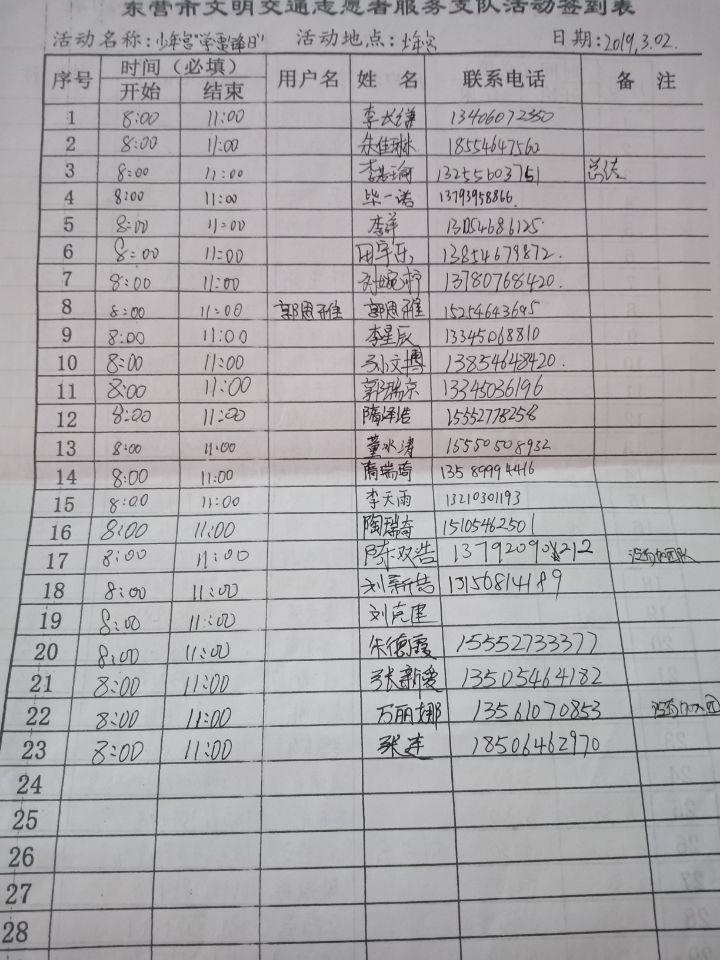 东营市文明交通志愿者服务支队活动签到表
活动名称:少年宫"学雷锋日" 活动地点:少年宫 日期:2019.3.02.
序号 时间(必填) 用户名 姓名 联系电话 备注
开始 结束
1 8:00 11:00 李长谦 13406072350
2 8:00 11:00 朱佳琳 18554647560
3 8:00 11:00 13255603751
4 8:00 11:00 毕一诺 13793958866.
5 8:00 11:00 李洋 13054686125
6 8:00 11:00 田宇乐 13854679872.
7 8:00 11:00 刘婉柠 13780768420.
8 8:00 11:00 郭恩雅 郭恩雅 15254643695
9 8:00 11:00 李星辰 13345068810
10 8:00 11:00 孙文博 13854648420.
11 8:00 11:00 郭瑞京 13345036196
12 8:00 11:00 隋泽浩 15552778258
13 8:00 11:00 董水涛 15550508932
14 8:00 11:00 隋瑞琦 13589994416
15 8:00 11:00 李天雨 13210301193
16 8:00 11:00 陶瑞奇 15105462501
17 8:00 11:00 陈双浩 没有加团队
18 8:00 11:00 刘新喆 13156814189
19 8:00 11:00 刘克建
20 8:00 11:00 朱德霞 15552733377
21 8:00 11:00 张新爱 13505464182
22 8:00 11:00 万丽娜 13561070853 没有加入团
23 8:00 11:00 张连 18506462970
24
25
26
27
28